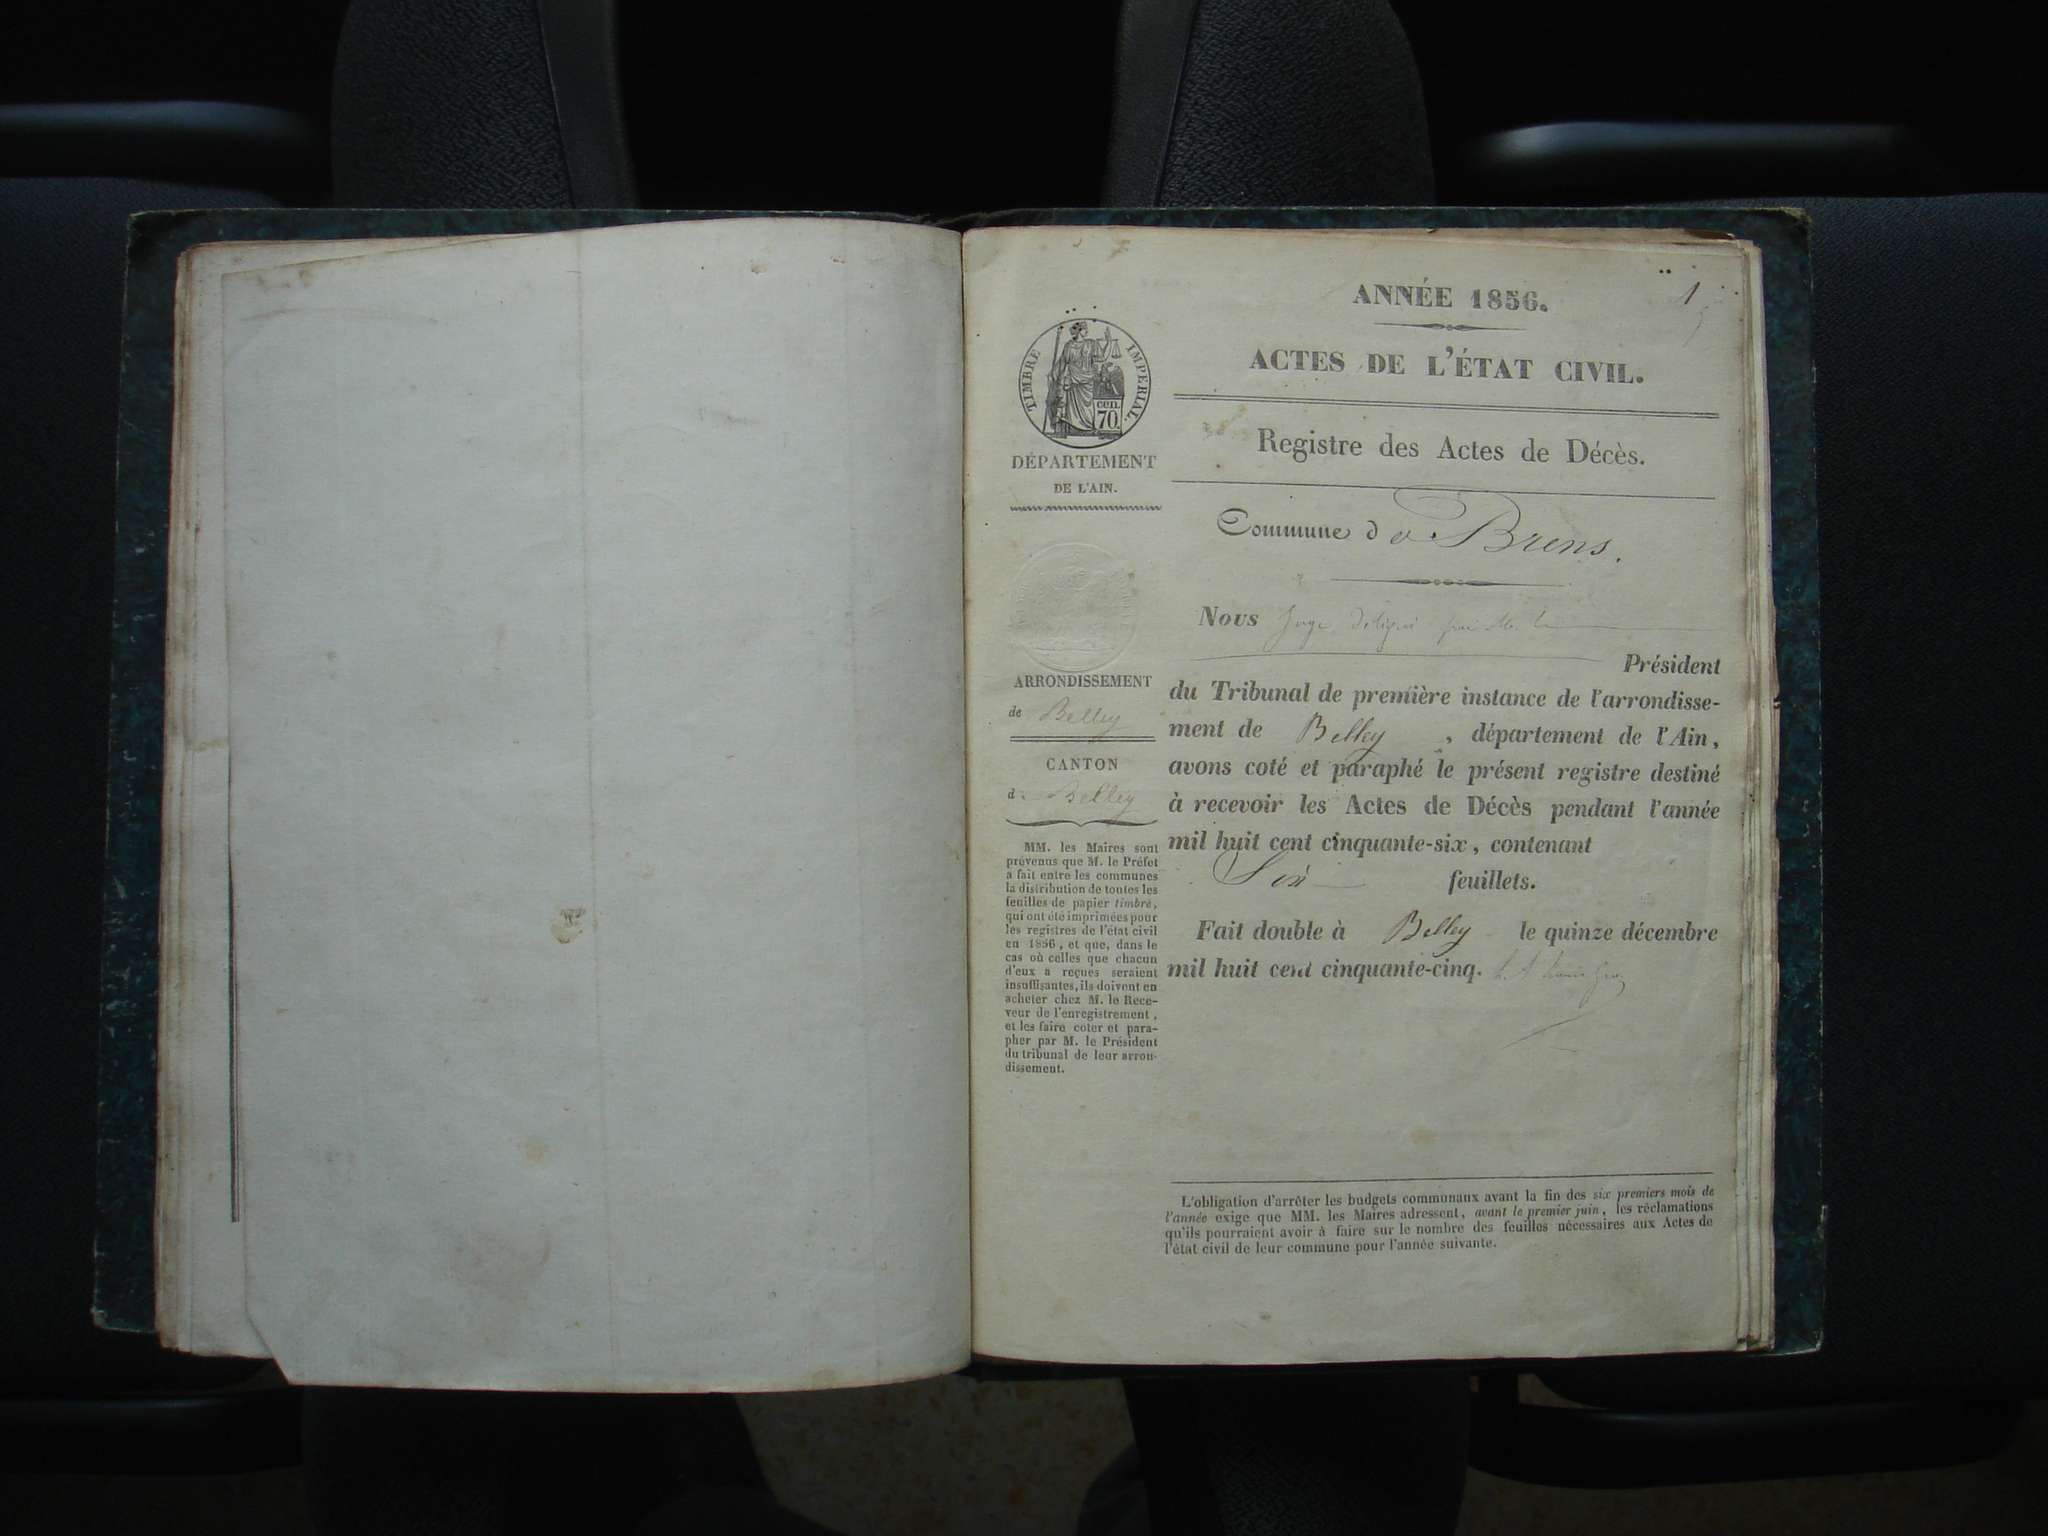 1
ANNÉE 1856.
ACTES DE L'ÉTAT CIVIL.
Registre des Actes de Décès.
Commune de Brens.
TIMBRE IMPERIAL.
CEN.
70.
DÉPARTEMENT
DE L'AIN.
ARRONDISSEMENT
de Belley
CANTON
de Belley
MM. les Maires sont
prévenus que M. le Préfet
a fait entre les communes
la distribution de toutes les
feuilles de papier timbré,
qui ont été imprimées pour
les registres de l'état civil
en 1856, et que, dans le
cas où celles que chacun
d'eux a reçues seraient
insuffisantes, ils doivent en
acheter chez M. le Rece-
veur de l'enregistrement,
et les faire coter et para-
pher par M. le Président
du tribunal de leur arron-
dissement.
Nous Juge délégué par M. le
Président
du Tribunal de première instance de l'arrondisse-
ment de Belley, département de l'Ain,
avons coté et paraphé le présent registre destiné
à recevoir les Actes de Décès pendant l'année
mil huit cent cinquante-six, contenant
Six feuillets.
Fait double à Belley le quinze décembre
mil huit cent cinquante-cinq.
L'obligation d'arrêter les budgets communaux avant la fin des six premiers mois de
l'année exige que MM. les Maires adressent, avant le premier juin, les réclamations
qu'ils pourraient avoir à faire sur le nombre des feuilles nécessaires aux Actes de
l'état civil de leur commune pour l'année suivante.